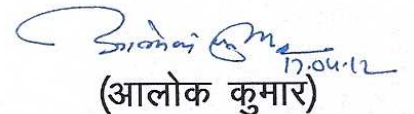 17.04.12
(आलोक कुमार)